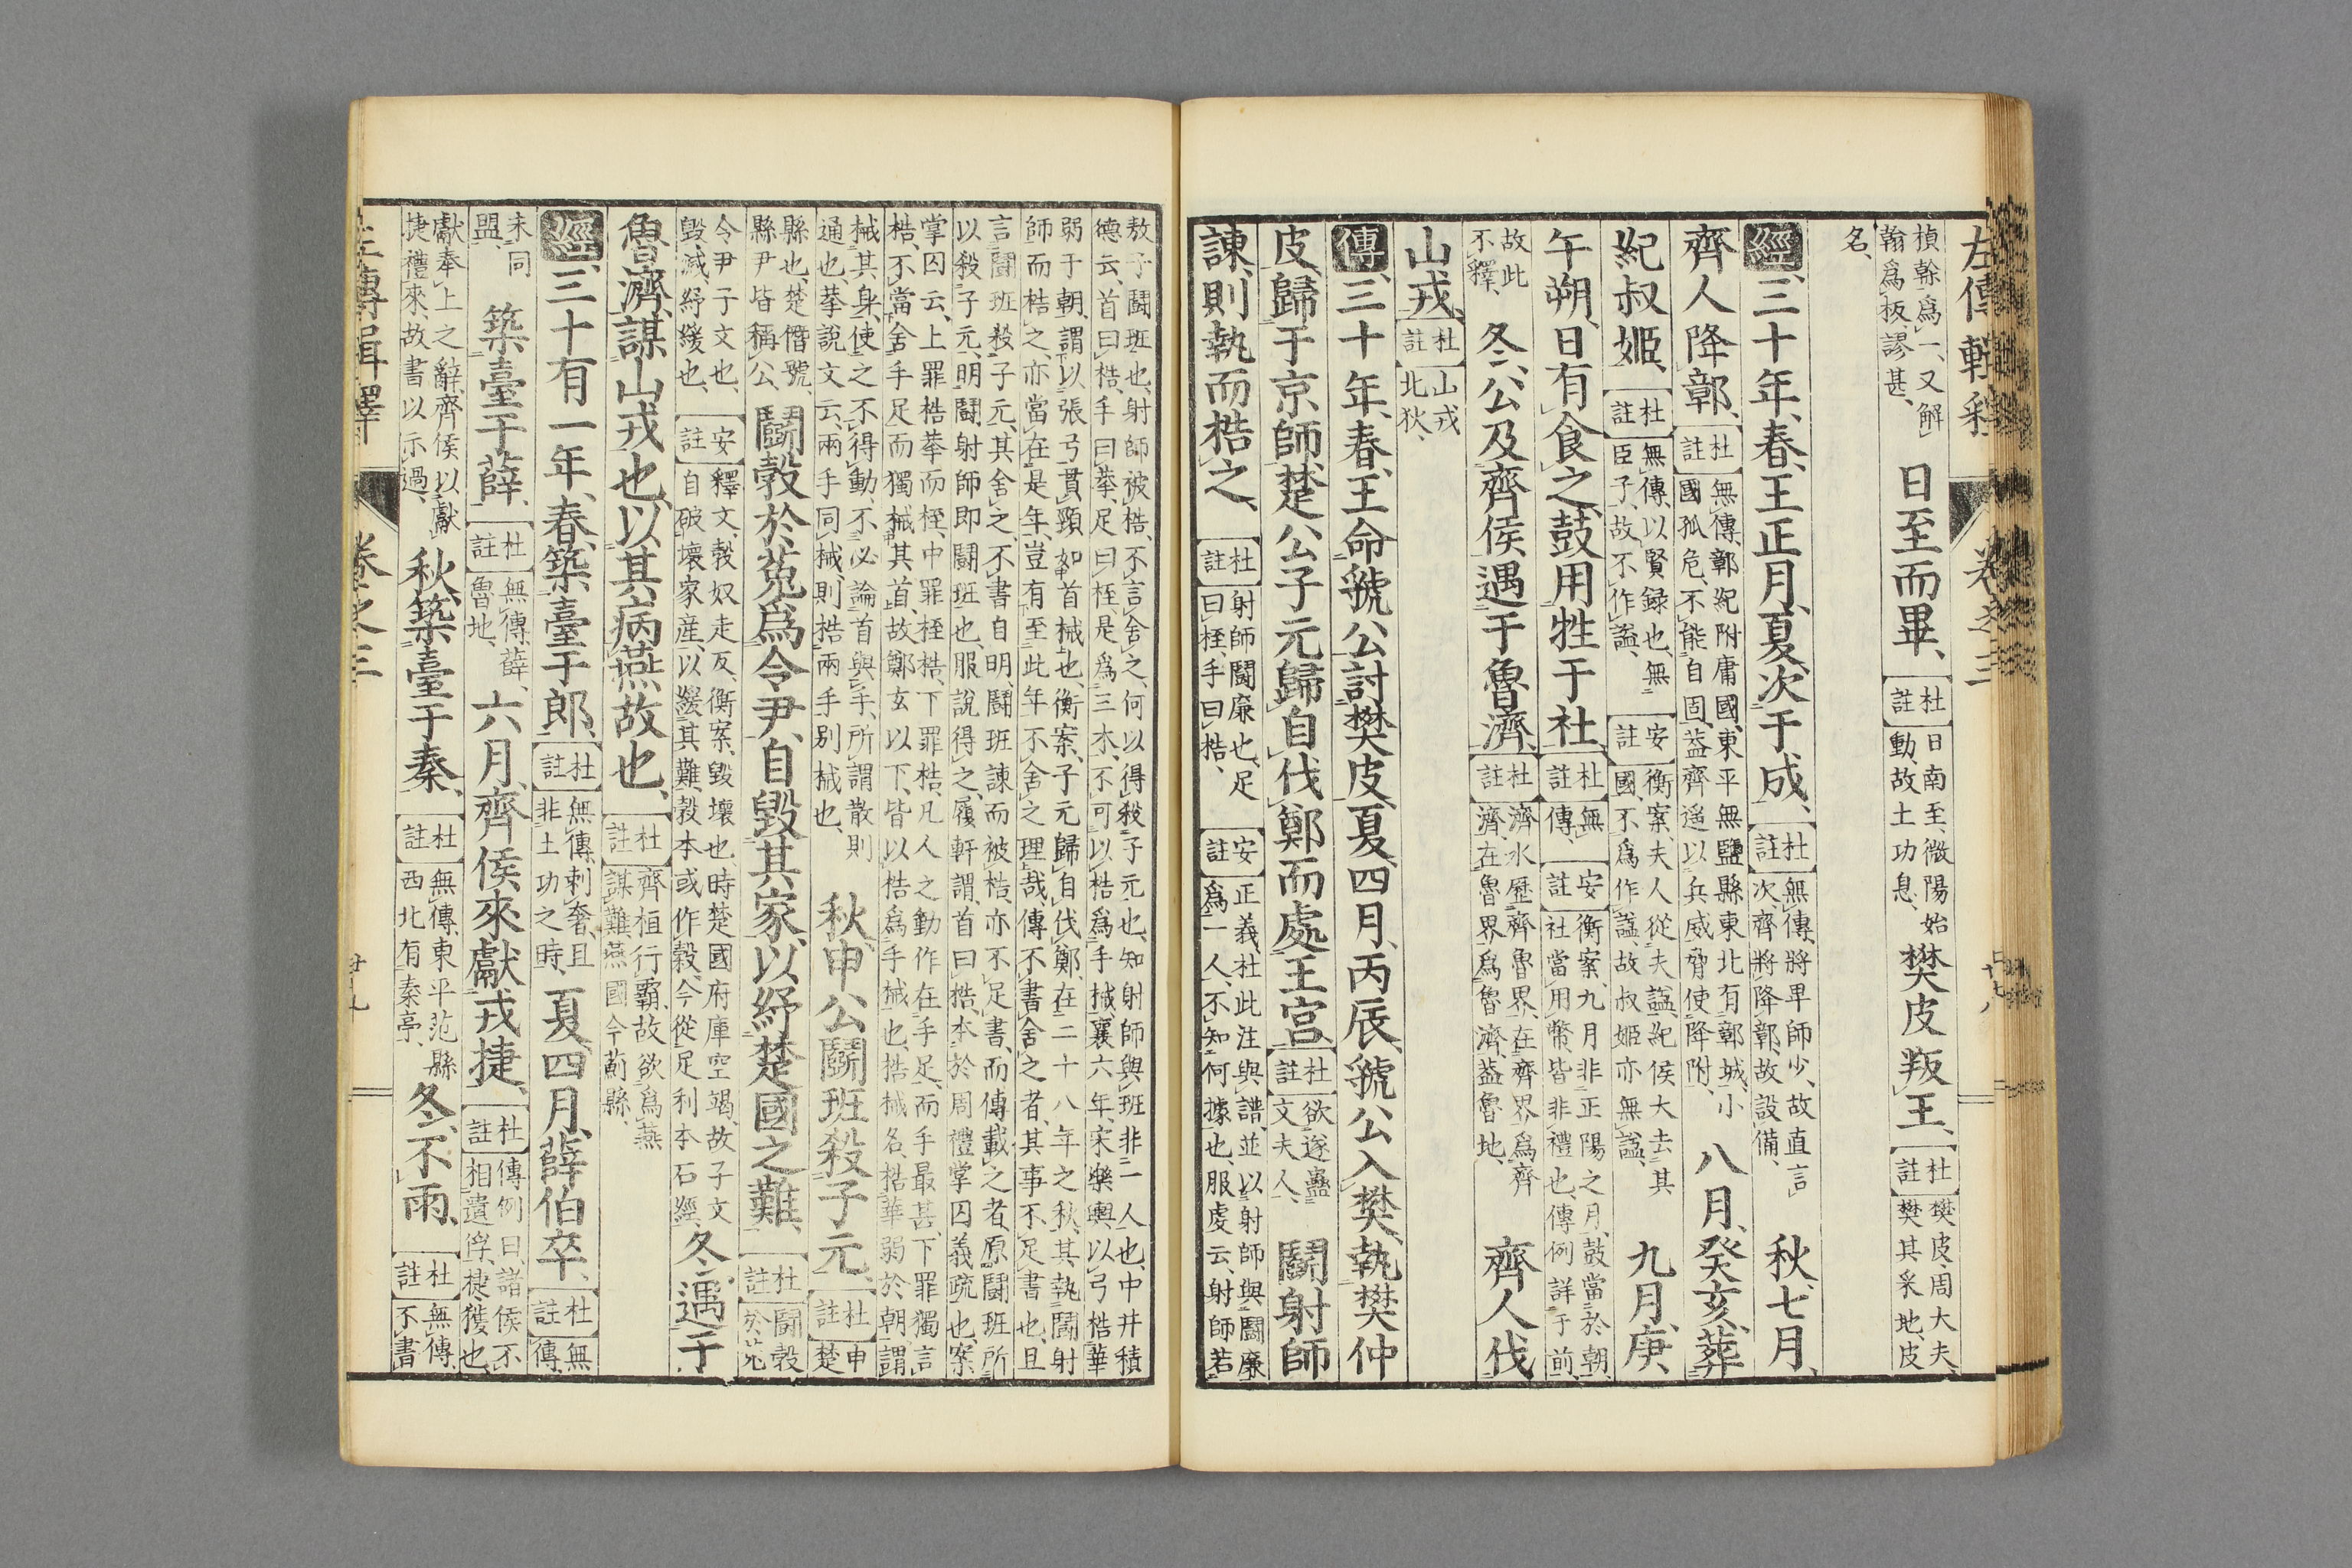 左傳輯釋 卷之三
楨幹爲一、又解翰爲板、謬甚、 日至而畢、 杜註 日南至、微陽始動、故土功息、 樊皮叛王、 杜註 樊皮、周大夫、樊其采地、皮
名、
經、三十年、春、王正月、夏、次于成、 杜註 無傳、將卑師少、故直言次、齊將降鄣、故設備、 秋、七月、
齊人降鄣、 杜註 無傳、鄣紀附庸國、東平無鹽縣東北有鄣城、小國孤危、不能自固、蓋齊遥以兵威脅使降附、 八月、癸亥、葬
紀叔姬、 杜註 無傳、以賢録也、無臣子、故不作謚、 安註 衡案、夫人從夫謚、紀侯大去其國、不爲作謚、故叔姬亦無謚、 九月、庚
午朔、日有食之、鼓用牲于社、 杜註 無傳、 安註 衡案、九月非正陽之月、鼓當於朝、社當用幣、皆非禮也、傳例詳于前、
故此不釋、 冬、公及齊侯遇于魯濟、 杜註 濟水歷齊魯界、在齊界爲齊濟、在魯界爲魯濟、蓋魯地、 齊人伐
山戎、 杜註 山戎北狄、
傳、三十年、春、王命虢公討樊皮、夏、四月、丙辰、虢公入樊、執樊仲
皮、歸于京師、楚公子元歸自伐鄭、而處王宮、 杜註 欲遂蠱文夫人、 鬬射師
諫、則執而梏之、 杜註 射師鬬廉也、足曰桎、手曰梏、 安註 正義、杜此注與譜、並以射師與鬬廉爲一人、不知何據也、服虔云、射師若
敖子鬬班也、射師被梏、不言舍之、何以得殺子元也、知射師與班非一人也、中井積德云、首曰梏、手曰拲、足曰桎、是爲三木、不可以梏爲手械、襄六年、宋樂輿、以弓梏華
弱于朝、謂以張弓貫頸、如首械也、衡案、子元歸自伐鄭、在二十八年之秋、其執鬬射師而梏之、亦當在是年、豈有至此年不舍之理哉、傳不書舍之者、其事不足書也、且
言鬬班殺子元、其舍之、不書自明、鬬班諫而被梏、亦不足書、而傳載之者、原鬬班所以殺子元、明鬬射師即鬬班也、服說得之、履軒謂、首曰梏、本於周禮掌囚義疏也、案
掌囚云、上罪梏拲而桎、中罪桎梏、下罪梏、凡人之動作在手足、而手最甚、下罪獨言梏、不當舍手足而獨械其首、故鄭玄以下、皆以梏爲手械也、梏械名、梏華弱於朝、謂
械其身、使之不得動、不必論首與手、所謂散則通也、拲說文云、兩手同械、則梏兩手別械也、 秋、申公鬬班殺子元、 杜註 申楚
縣也、楚僭號、縣尹皆稱公、 鬬穀於菟爲令尹、自毀其家、以紓楚國之難、 杜註 鬬穀於菟
令尹子文也、毀減、紓緩也、 安註 釋文、穀奴走反、衡案、毀壞也、時楚國府庫空竭、故子文自破壞家産、以緩其難、穀本或作㝅、今從足利本石經、 冬、遇于
魯濟、謀山戎也、以其病燕故也、 杜註 齊桓行霸、故欲爲燕謀難、燕國今薊縣、
經、三十有一年、春、築臺于郎、 杜註 無傳、刺奢、且非土功之時、 夏、四月、薛伯卒、 杜註 無傳、
未同盟、 築臺于薛、 杜註 無傳、薛、魯地、 六月、齊侯來獻戎捷、 杜註 傳例曰、諸侯不相遺俘、捷、獲也、
獻奉上之辭、齊侯以獻捷禮來、故書以示過、 秋、築臺于秦、 杜註 無傳、東平范縣西北有秦亭、 冬、不雨、 杜註 無傳、不書
左傳輯釋 卷之三 廿九